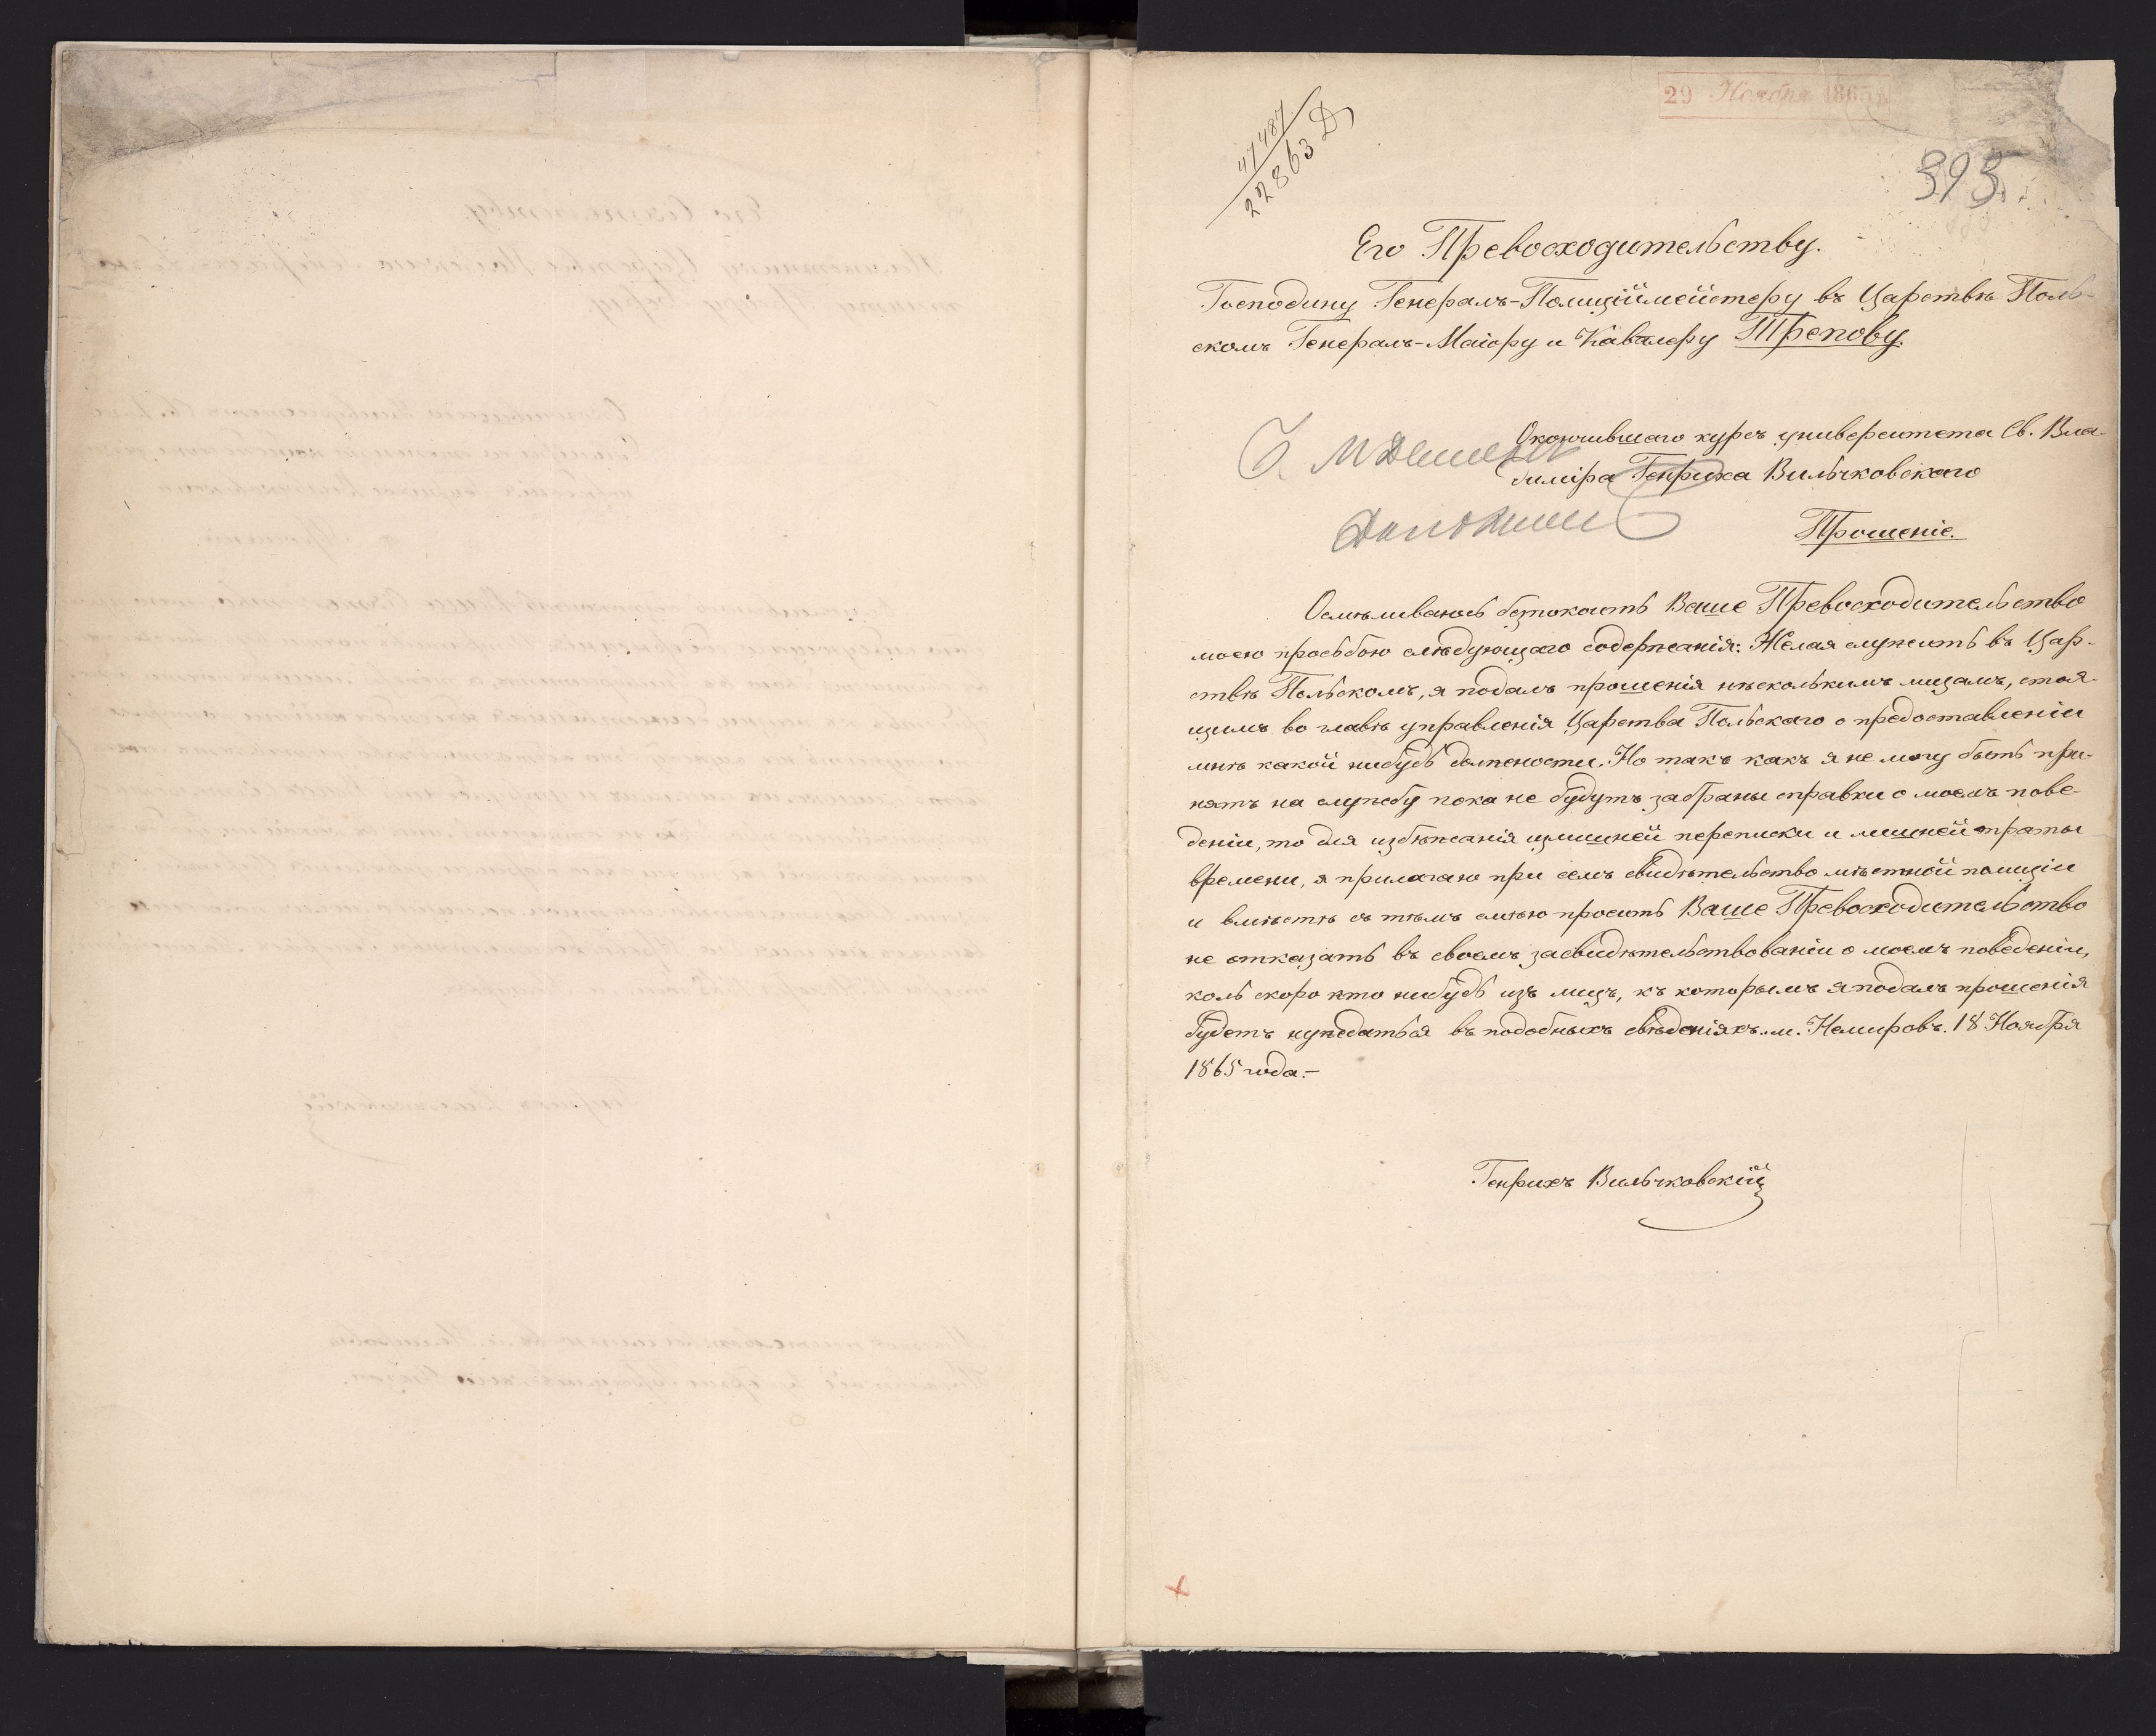 29 Ноября 1865
47487
22863 Д
395.
Его Превосходительству.
Господину Генералъ-Полиціймейстеру въ Царствѣ Поль-
скомъ Генералъ-Маіору и Кавалеру Трепову.
Окончившаго курсъ университета Св. Вла-
диміра Генриха Вильчковскаго
Прошеніе.
Осмѣливаюсь безпокоить Ваше Превосходительство
моею просьбою слѣдующаго содержанія: Желая служить въ Цар-
ствѣ Польскомъ, я подалъ прошенія нѣсколькимъ лицамъ, стоя-
щимъ во главѣ управленія Царства Польскаго о предоставленіи
мнѣ какой нибудь должности. Но такъ какъ я не могу быть при-
нятъ на службу пока не будутъ забраны справки о моемъ пове-
деніи, то для избѣжанія излишней переписки и лишней траты
времени, я прилагаю при семъ свидѣтельство мѣстной полиціи
и вмѣстѣ съ тѣмъ смѣю просить Ваше Превосходительство
не отказать въ своемъ засвидѣтельствованіи о моемъ поведеніи,
коль скоро кто нибудь изъ лицъ, къ которымъ я подалъ прошенія
будетъ нуждаться въ подобныхъ свѣденіяхъ. м. Немировъ. 18 Ноября
1865 года.-
Генрихъ Вильчковскій